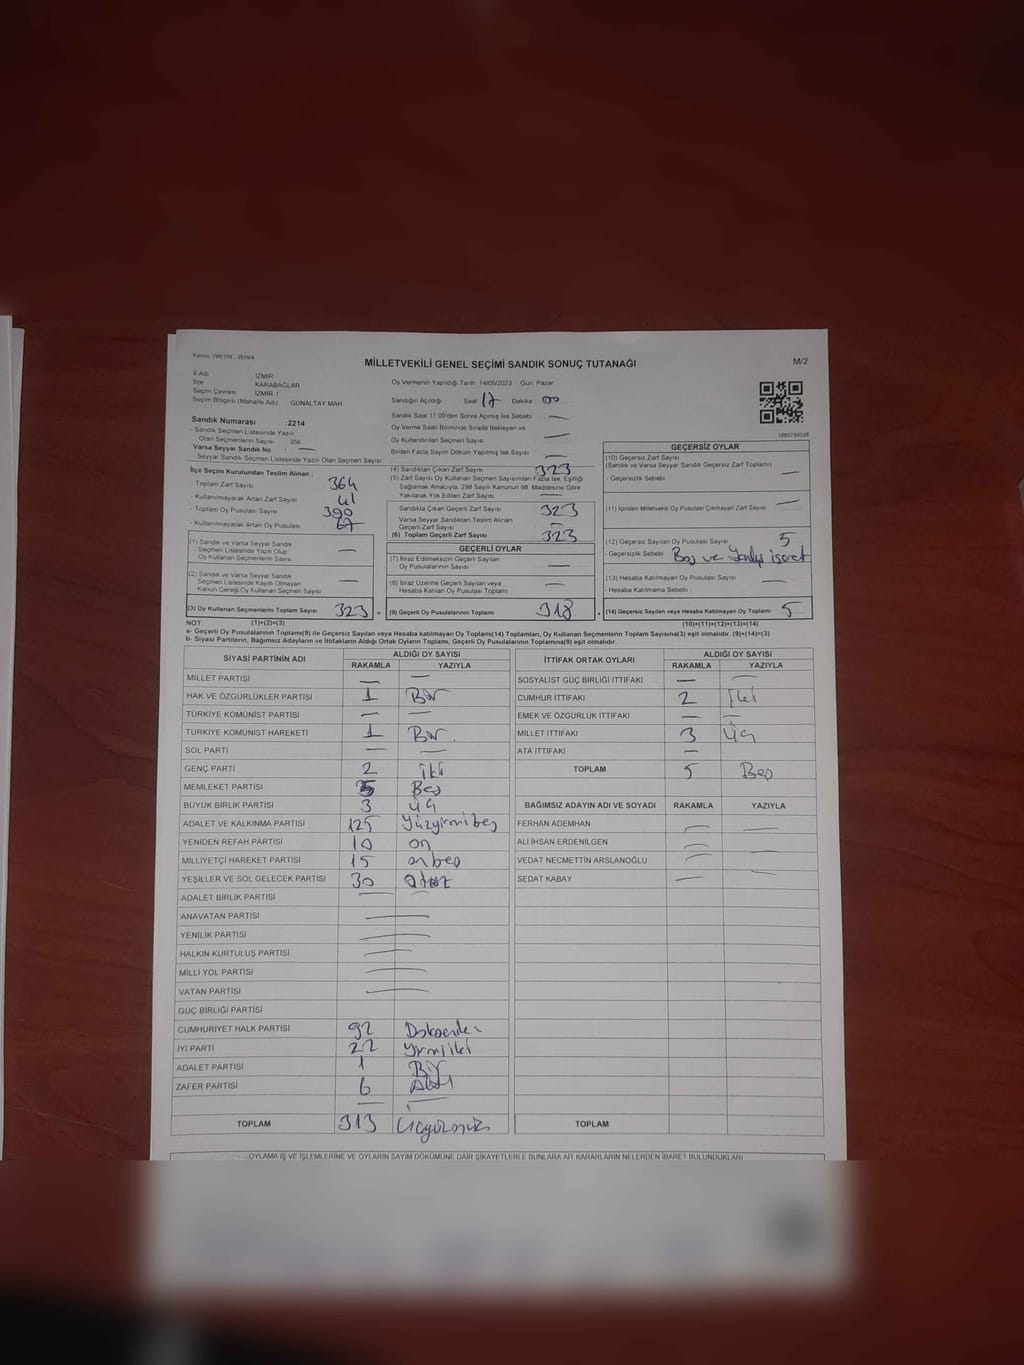 Kanun: 298/105 , 2839/4
MİLLETVEKİLİ GENEL SEÇİMİ SANDIK SONUÇ TUTANAĞI
M/2
İl Adı İZMİR
İlçe KARABAĞLAR
Seçim Çevresi İZMİR-1
Seçim Bölgesi (Mahalle Adı) GÜNALTAY MAH
Sandık Numarası :2214
- Sandık Seçmen Listesinde Yazılı
Olan Seçmenlerin Sayısı 356
- Varsa Seyyar Sandık No —
- Seyyar Sandık Seçmen Listesinde Yazılı Olan Seçmen Sayısı
İlçe Seçim Kurulundan Teslim Alınan ;
- Toplam Zarf Sayısı 364
- Kullanılmayarak Artan Zarf Sayısı 41
- Toplam Oy Pusulası Sayısı 390
- Kullanılmayarak Artan Oy Pusulası 67
(1) Sandık ve Varsa Seyyar Sandık
Seçmen Listesinde Yazılı Olup
Oy Kullanan Seçmenlerin Sayısı —
(2) Sandık ve Varsa Seyyar Sandık
Seçmen Listesinde Kayıtlı Olmayan
Kanun Gereği Oy Kullanan Seçmen Sayısı —
(3) Oy Kullanan Seçmenlerin Toplam Sayısı 323
(1)+(2)=(3)
Oy Vermenin Yapıldığı Tarih :14/05/2023 Gün: Pazar
Sandığın Açıldığı Saat 17 Dakika 00
Sandık Saat 17.00'den Sonra Açılmış İse Sebebi —
Oy Verme Saati Bitiminde Sırada Bekleyen ve
Oy Kullandırılan Seçmen Sayısı —
Birden Fazla Sayım Döküm Yapılmış İse Sayısı —
(4) Sandıktan Çıkan Zarf Sayısı 323
(5) Zarf Sayısı Oy Kullanan Seçmen Sayısından Fazla İse, Eşitliği
Sağlamak Amacıyla, 298 Sayılı Kanunun 98. Maddesine Göre
Yakılarak Yok Edilen Zarf Sayısı —
Sandıkta Çıkan Geçerli Zarf Sayısı 323
Varsa Seyyar Sandıktan Teslim Alınan
Geçerli Zarf Sayısı —
(6) Toplam Geçerli Zarf Sayısı 323
GEÇERLİ OYLAR
(7) İtiraz Edilmeksizin Geçerli Sayılan
Oy Pusulalarının Sayısı —
(8) İtiraz Üzerine Geçerli Sayılan veya
Hesaba Katılan Oy Pusulaları Toplamı —
(9) Geçerli Oy Pusulalarının Toplamı 318
1683799528
GEÇERSİZ OYLAR
(10) Geçersiz Zarf Sayısı
(Sandık ve Varsa Seyyar Sandık Geçersiz Zarf Toplamı)
- Geçersizlik Sebebi —
(11) İçinden Milletvekili Oy Pusulası Çıkmayan Zarf Sayısı —
(12) Geçersiz Sayılan Oy Pusulası Sayısı 5
- Geçersizlik Sebebi Boş ve Yanlış işaret
(13) Hesaba Katılmayan Oy Pusulası Sayısı —
- Hesaba Katılmama Sebebi
(14) Geçersiz Sayılan veya Hesaba Katılmayan Oy Toplamı 5
(10)+(11)+(12)+(13)=(14)
NOT:
a- Geçerli Oy Pusulalarının Toplamı(9) ile Geçersiz Sayılan veya Hesaba katılmayan Oy Toplamı(14) Toplamları, Oy Kullanan Seçmenlerin Toplam Sayısına(3) eşit olmalıdır. (9)+(14)=(3)
b- Siyasi Partilerin, Bağımsız Adayların ve İttifakların Aldığı Ortak Oyların Toplamı, Geçerli Oy Pusulalarının Toplamına(9) eşit olmalıdır.
SİYASİ PARTİNİN ADI ALDIĞI OY SAYISI
RAKAMLA YAZIYLA
MİLLET PARTİSİ — —
HAK VE ÖZGÜRLÜKLER PARTİSİ 1 Bir
TÜRKİYE KOMÜNİST PARTİSİ — —
TÜRKİYE KOMÜNİST HAREKETİ 1 Bir.
SOL PARTİ — —
GENÇ PARTİ 2 iki
MEMLEKET PARTİSİ 5 Beş
BÜYÜK BİRLİK PARTİSİ 3 üç
ADALET VE KALKINMA PARTİSİ 125 Yüzyirmibeş
YENİDEN REFAH PARTİSİ 10 on
MİLLİYETÇİ HAREKET PARTİSİ 15 onbeş
YEŞİLLER VE SOL GELECEK PARTİSİ 30 otuz
ADALET BİRLİK PARTİSİ — —
ANAVATAN PARTİSİ —
YENİLİK PARTİSİ —
HALKIN KURTULUŞ PARTİSİ —
MİLLİ YOL PARTİSİ —
VATAN PARTİSİ —
GÜÇ BİRLİĞİ PARTİSİ
CUMHURİYET HALK PARTİSİ 92
İYİ PARTİ 22 Yirmiiki
ADALET PARTİSİ 1 Bir
ZAFER PARTİSİ 6 Altı
TOPLAM 313
İTTİFAK ORTAK OYLARI ALDIĞI OY SAYISI
RAKAMLA YAZIYLA
SOSYALİST GÜÇ BİRLİĞİ İTTİFAKI — —
CUMHUR İTTİFAKI 2 İki
EMEK VE ÖZGÜRLÜK İTTİFAKI — —
MİLLET İTTİFAKI 3 Üç
ATA İTTİFAKI —
TOPLAM 5 Beş
BAĞIMSIZ ADAYIN ADI VE SOYADI RAKAMLA YAZIYLA
FERHAN ADEMHAN — —
ALİ İHSAN ERDENİLGEN —
VEDAT NECMETTİN ARSLANOĞLU — —
SEDAT KABAY — —
TOPLAM
OYLAMA İŞ VE İŞLEMLERİNE VE OYLARIN SAYIM DÖKÜMÜNE DAİR ŞİKAYETLERLE BUNLARA AİT KARARLARIN NELERDEN İBARET BULUNDUKLARI